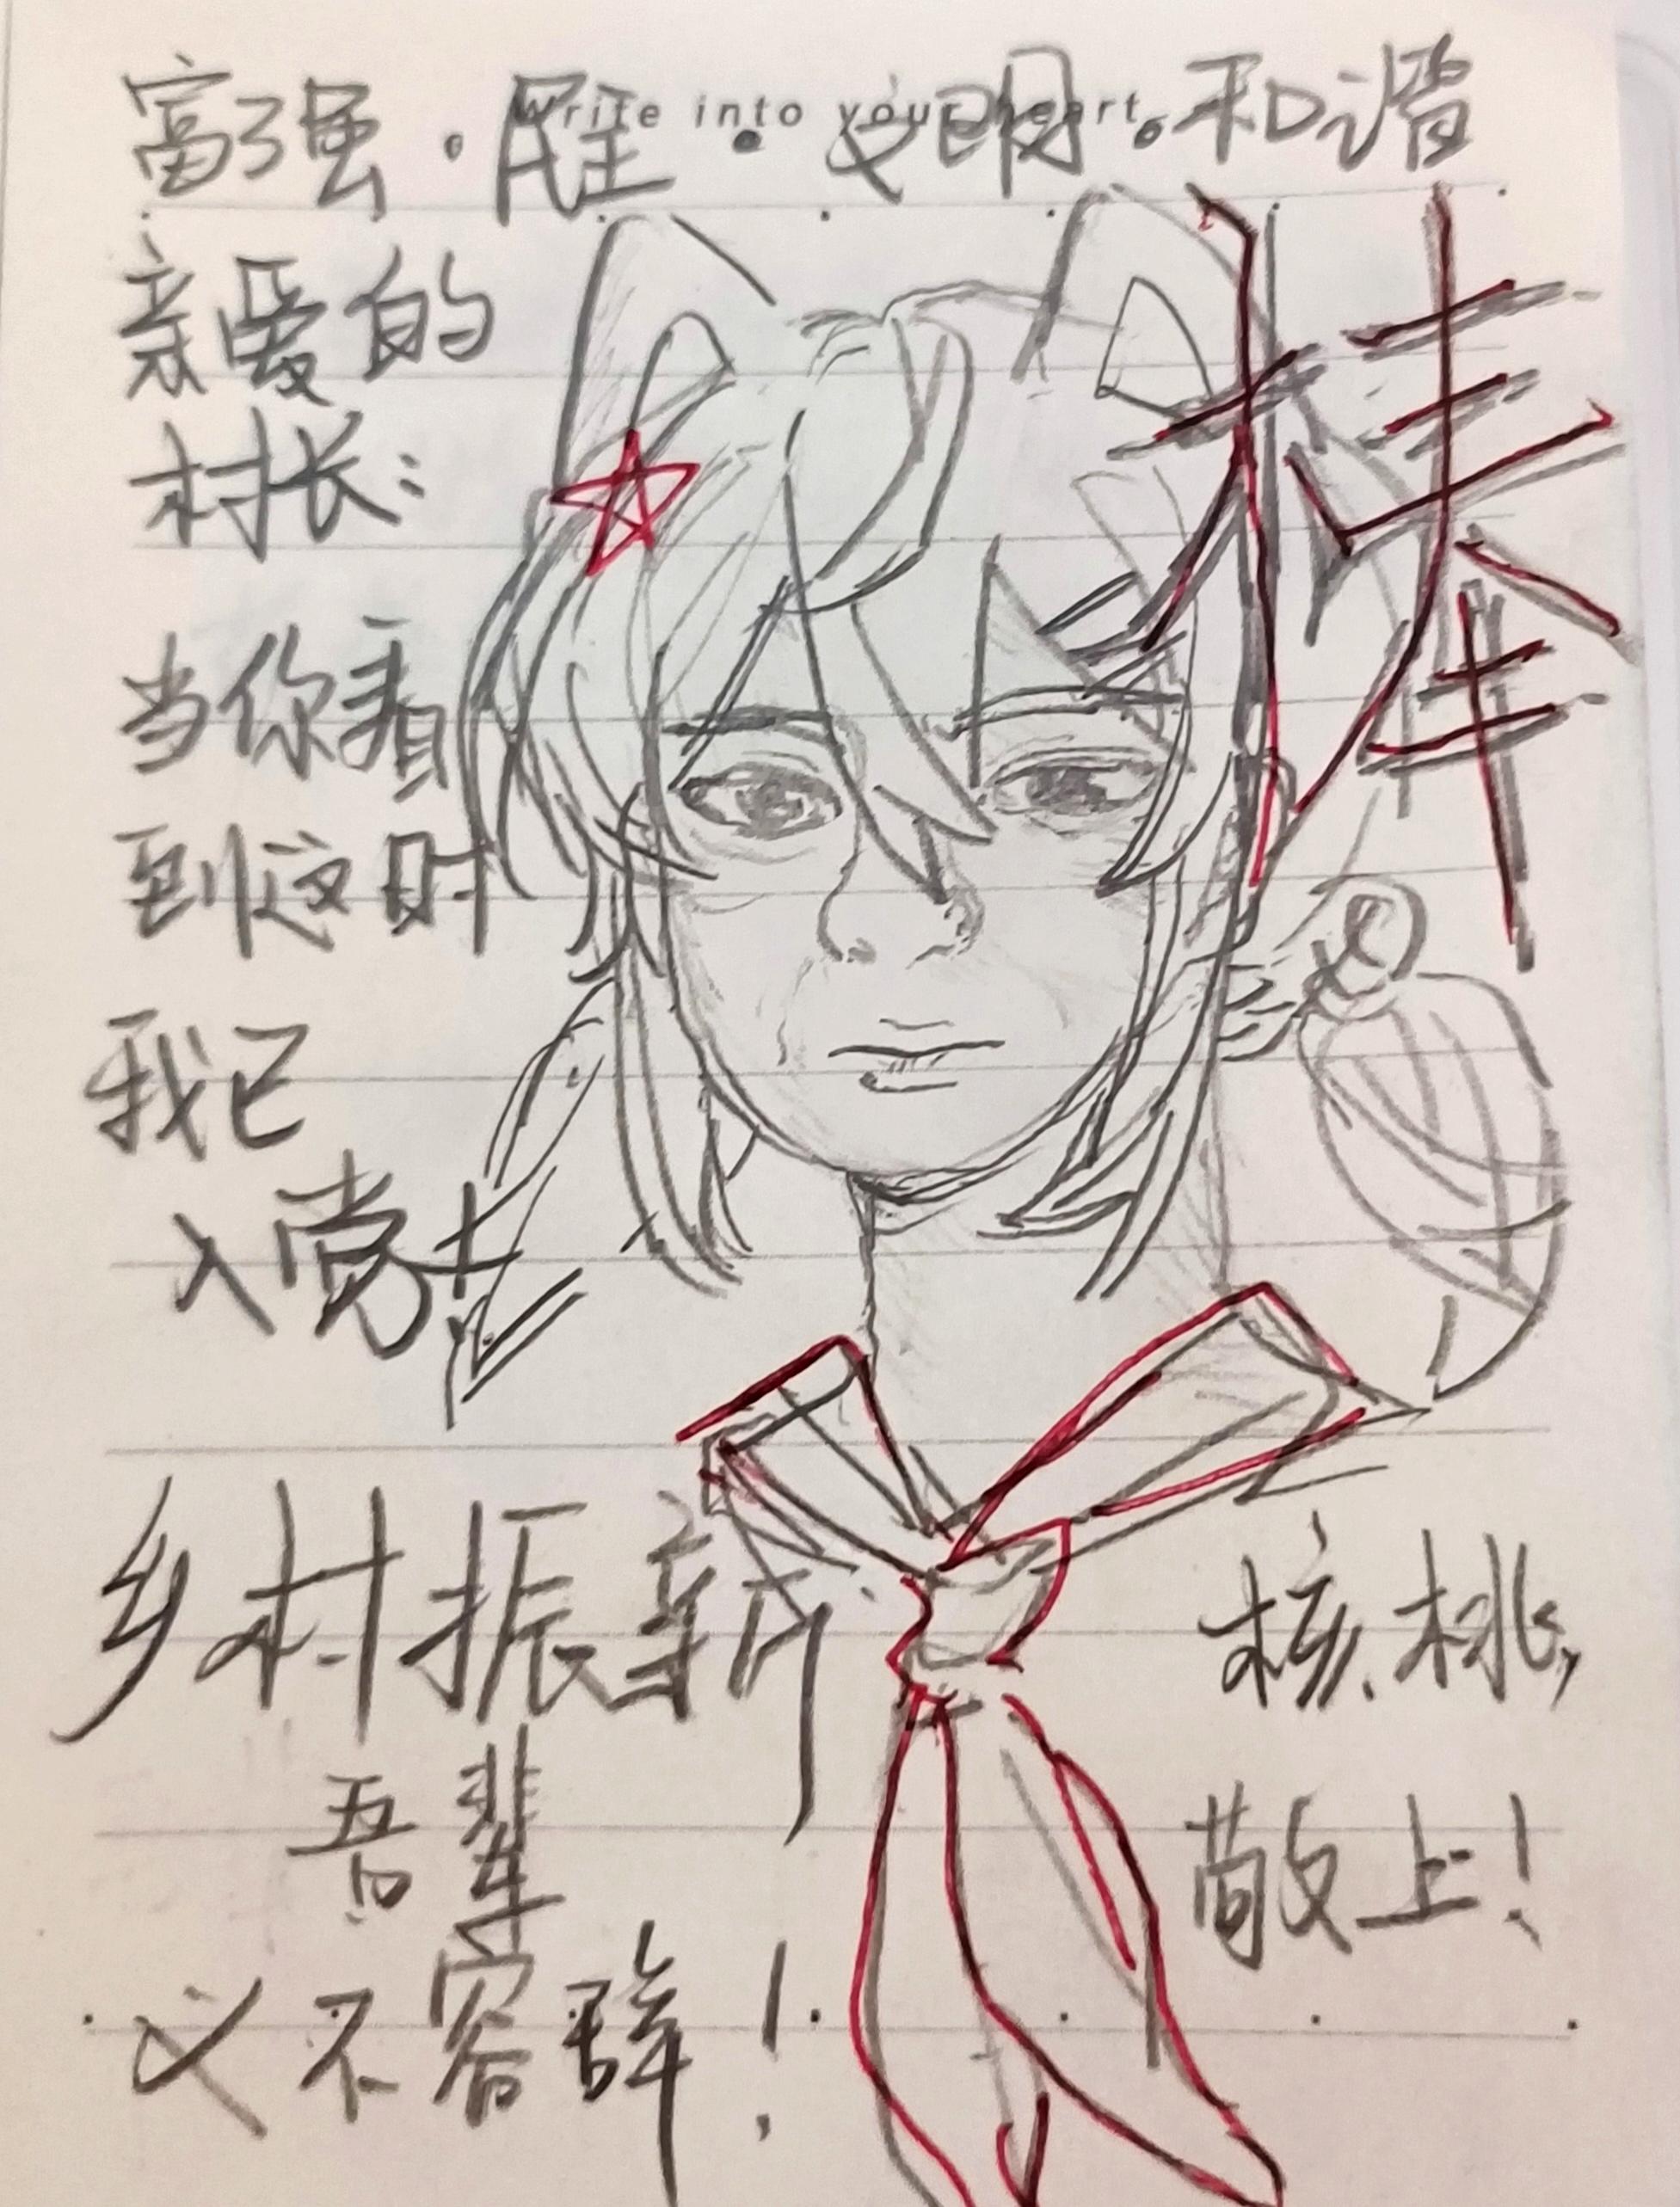 富强·民主·文明·和谐
Write into your heart.
亲爱的
村长：
棒
当你看
到这时
我已
入党±
乡村振新
核桃，
吾辈
敬上！
义不容辞！